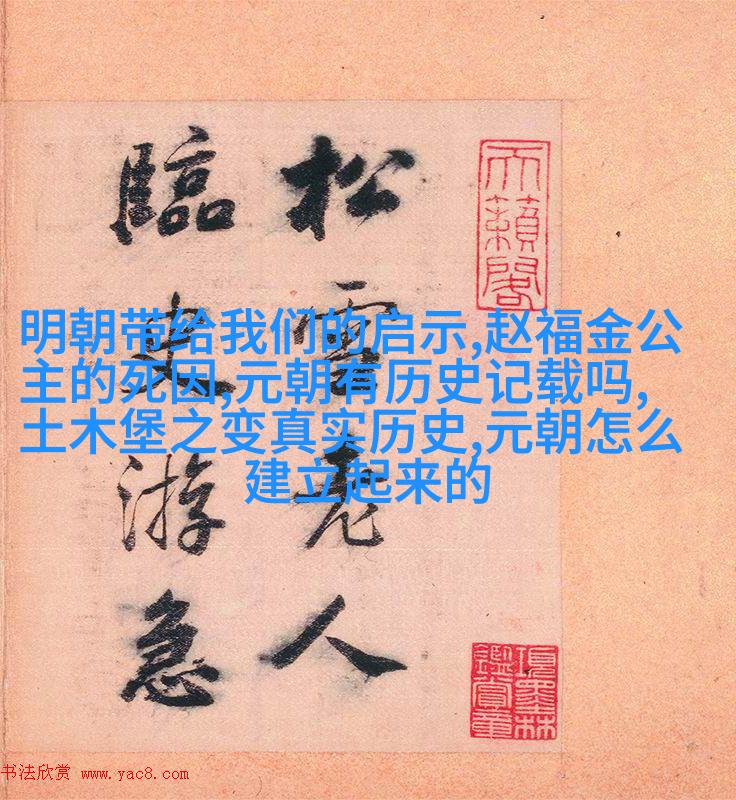 天籟閣
松雪老人
臨史游急
明朝带给我们的启示,赵福金公
主的死因,元朝有历史记载吗,
土木堡之变真实历史,元朝怎么
建立起来的
項墨林
鑑賞章
书法欣赏 www.yac8.com